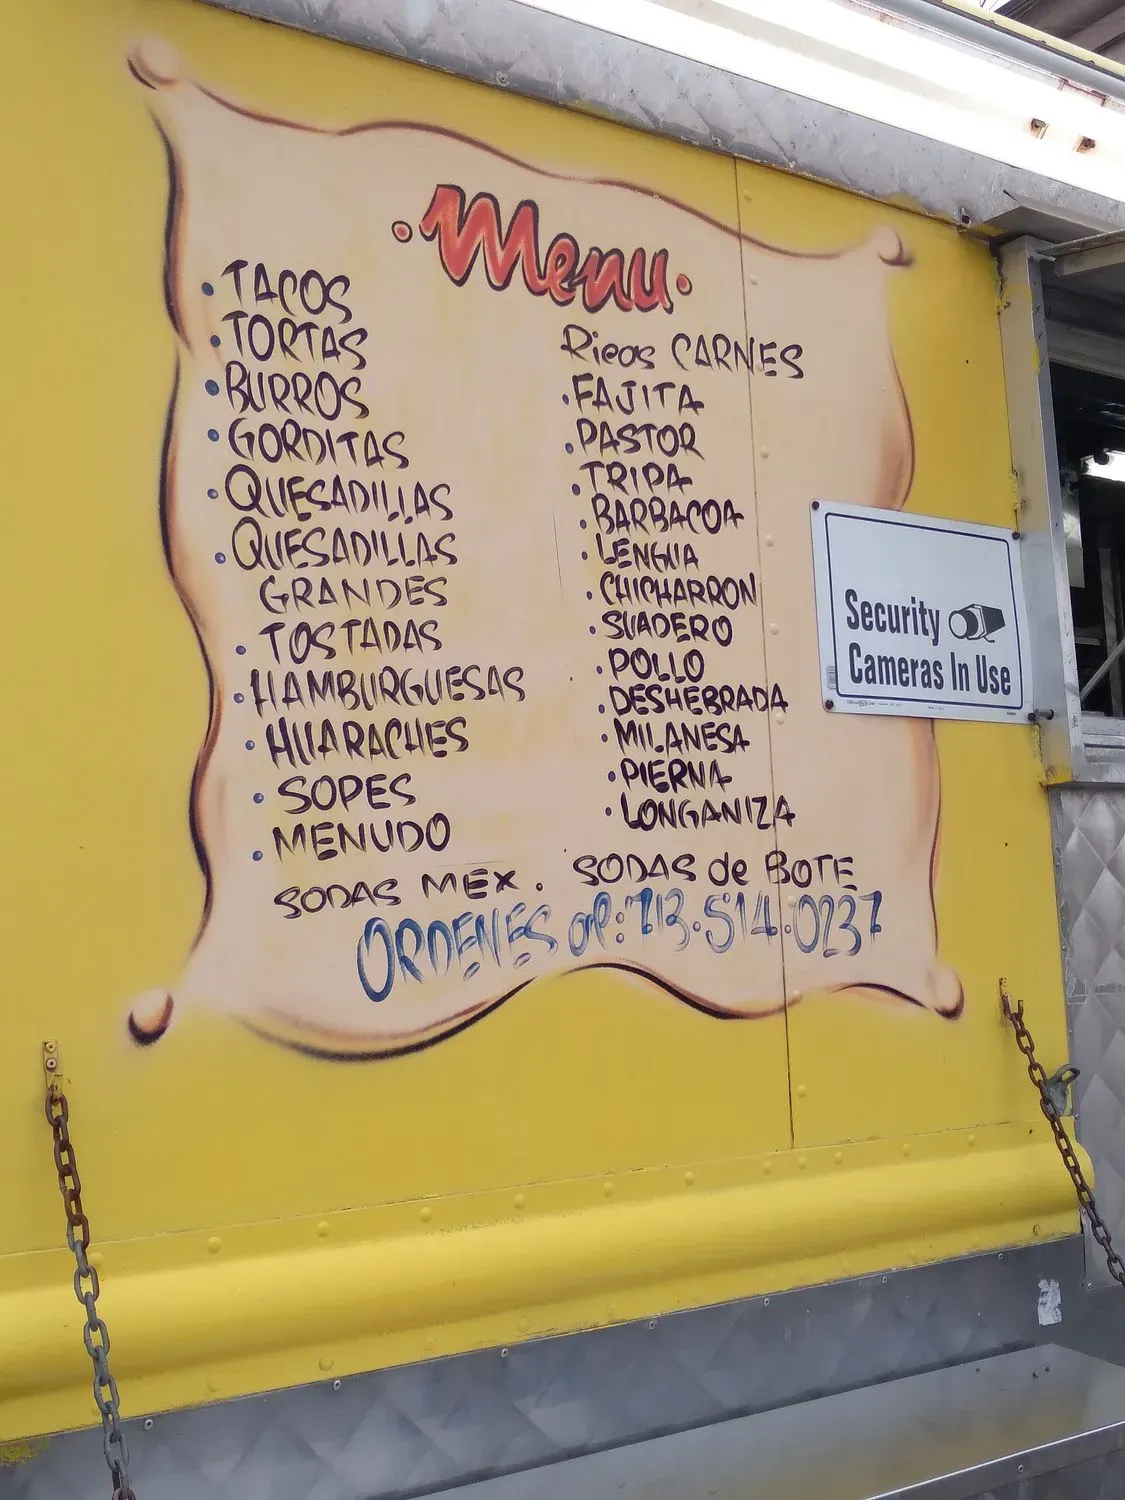 • Menu •
• TACOS
• TORTAS
• BURROS
• GORDITAS
• QUESADILLAS
• QUESADILLAS
GRANDES
• TOSTADAS
• HAMBURGUESAS
• HUARACHES
• SOPES
• MENUDO
Ricas CARNES
• FAJITA
• PASTOR
• TRIPA
• BARBACOA
• LENGUA
• CHICHARRON
• SUADERO
• POLLO
• DESHEBRADA
• MILANESA
• PIERNA
• LONGANIZA
SODAS MEX. SODAS de BOTE
ORDENES al: 713.514.0237
Security
Cameras In Use